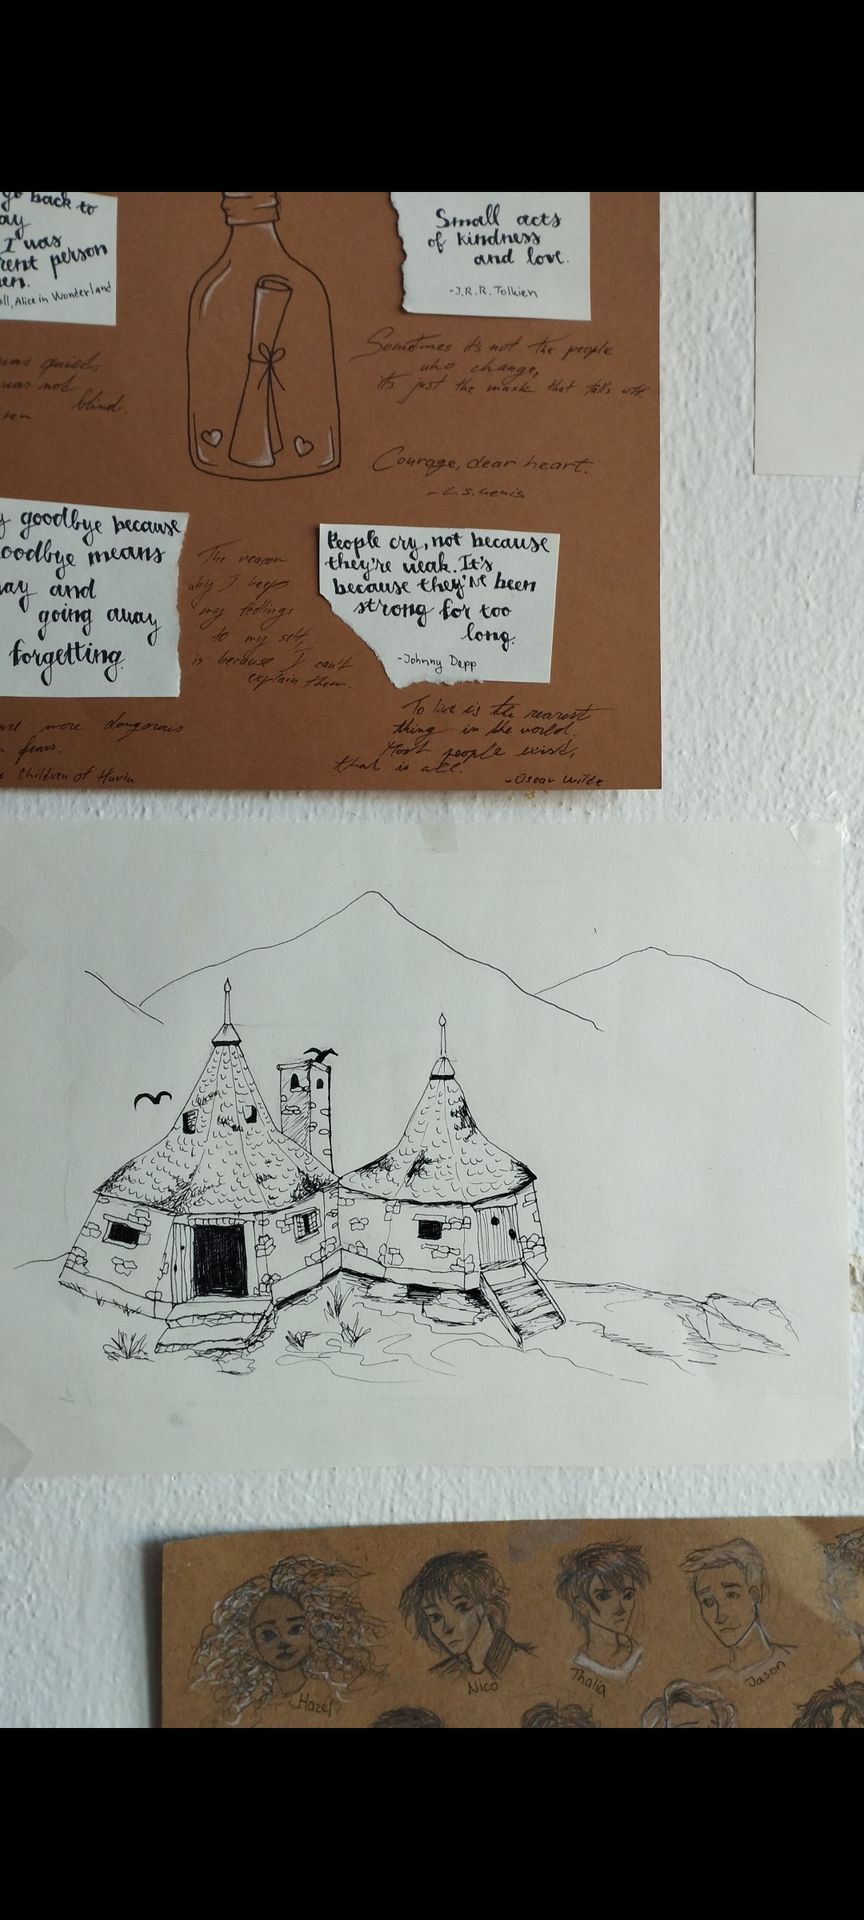 go back to
I was
rent person
Alice in Wonderland
Small acts
of kindness
and love.
-J.R.R. Tolkien
was quiet,
was not
blind.
Sometimes it's not the people
who change,
it's just the mask that falls off.
Courage, dear heart.
-C.S. Lewis
goodbye because
goodbye means
and
going away
forgetting.
The reason
why I keep
my feelings
to my self,
is because I can't
explain them.
People cry, not because
they're weak. It's
because they've been
strong for too
long.
-Johnny Depp
more dangerous
Children of Hurin
To live is the rarest
thing in the world.
Most people exist,
that is all.
-Oscar Wilde
Hazel
Nico
Thalia
Jason